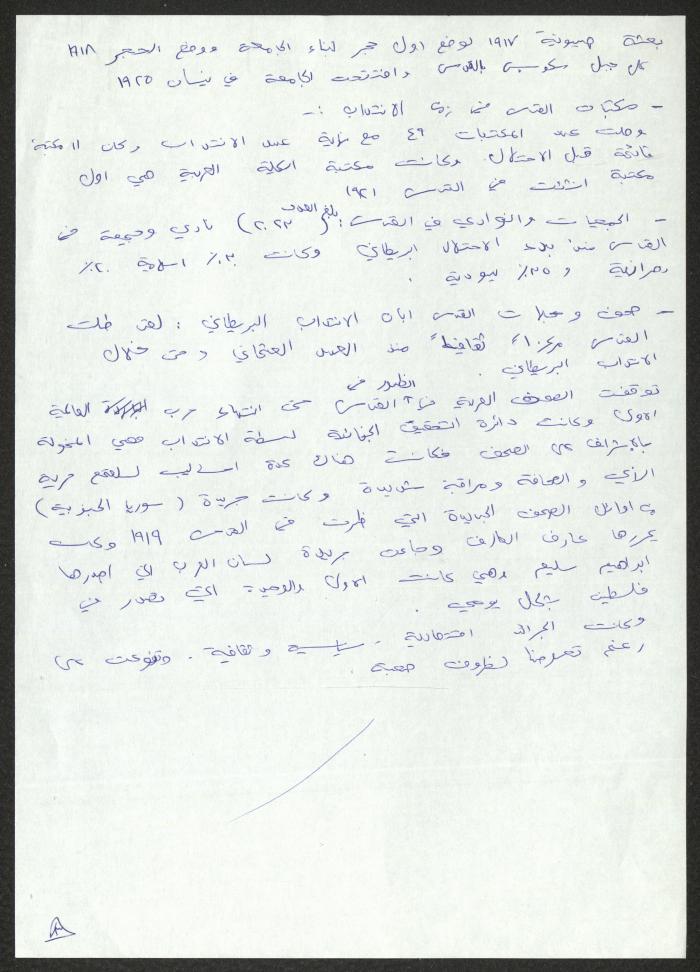 بعثة صهيونية ١٩١٧ لوضع اول حجر لبناء الجامعة ووضع الحجر ١٩١٨
على جبل سكوبس بالقدس وافتتحت الجامعة في نيسان ١٩٢٥
- مكتبات القدس في زمن الانتداب :-
وصلت عدد المكتبات ٤٩ مع نهاية عهد الانتداب وكان ١١ مكتبة
قائمة قبل الاحتلال وكانت مكتبة الكلية العربية هي اول
مكتبة انشئت في القدس ١٩٢١
- الجمعيات والنوادي في القدس : بلغ العدد (٢٠-٢٣) نادي وجمعية في
القدس منذ بدء الاحتلال البريطاني وكانت ٣٠٪ اسلامية ٢٠٪
نصرانية و ٣٥٪ يهودية .
- صحف ومجلات القدس ابان الانتداب البريطاني : لقد ظلت
القدس مركزاً ثقافياً منذ العهد العثماني ومن خلال
الانتداب البريطاني .
توقفت الصحف العربية الظهور في القدس حتى انتهاء حرب العالمية
الاولى وكانت دائرة التحقيق الجنائية لسلطة الانتداب هي المخولة
بالاشراف على الصحف فكانت هناك عدة اساليب لقمع حرية
الرأي والصحافة ومراقبة شديدة وكانت جريدة (سوريا الجنوبية)
اوائل الصحف الجديدة التي ظهرت في القدس ١٩١٩ وكان
يحررها عارف العارف وجاءت جريدة لسان العرب التي اصدرها
ابراهيم سليم وهي كانت الاولى والوحيدة التي تصدر في
فلسطين بشكل يومي .
وكانت الجرائد اقتصادية - سياسية وثقافية . وتنوعت على
رغم تعرضها لظروف صعبة .